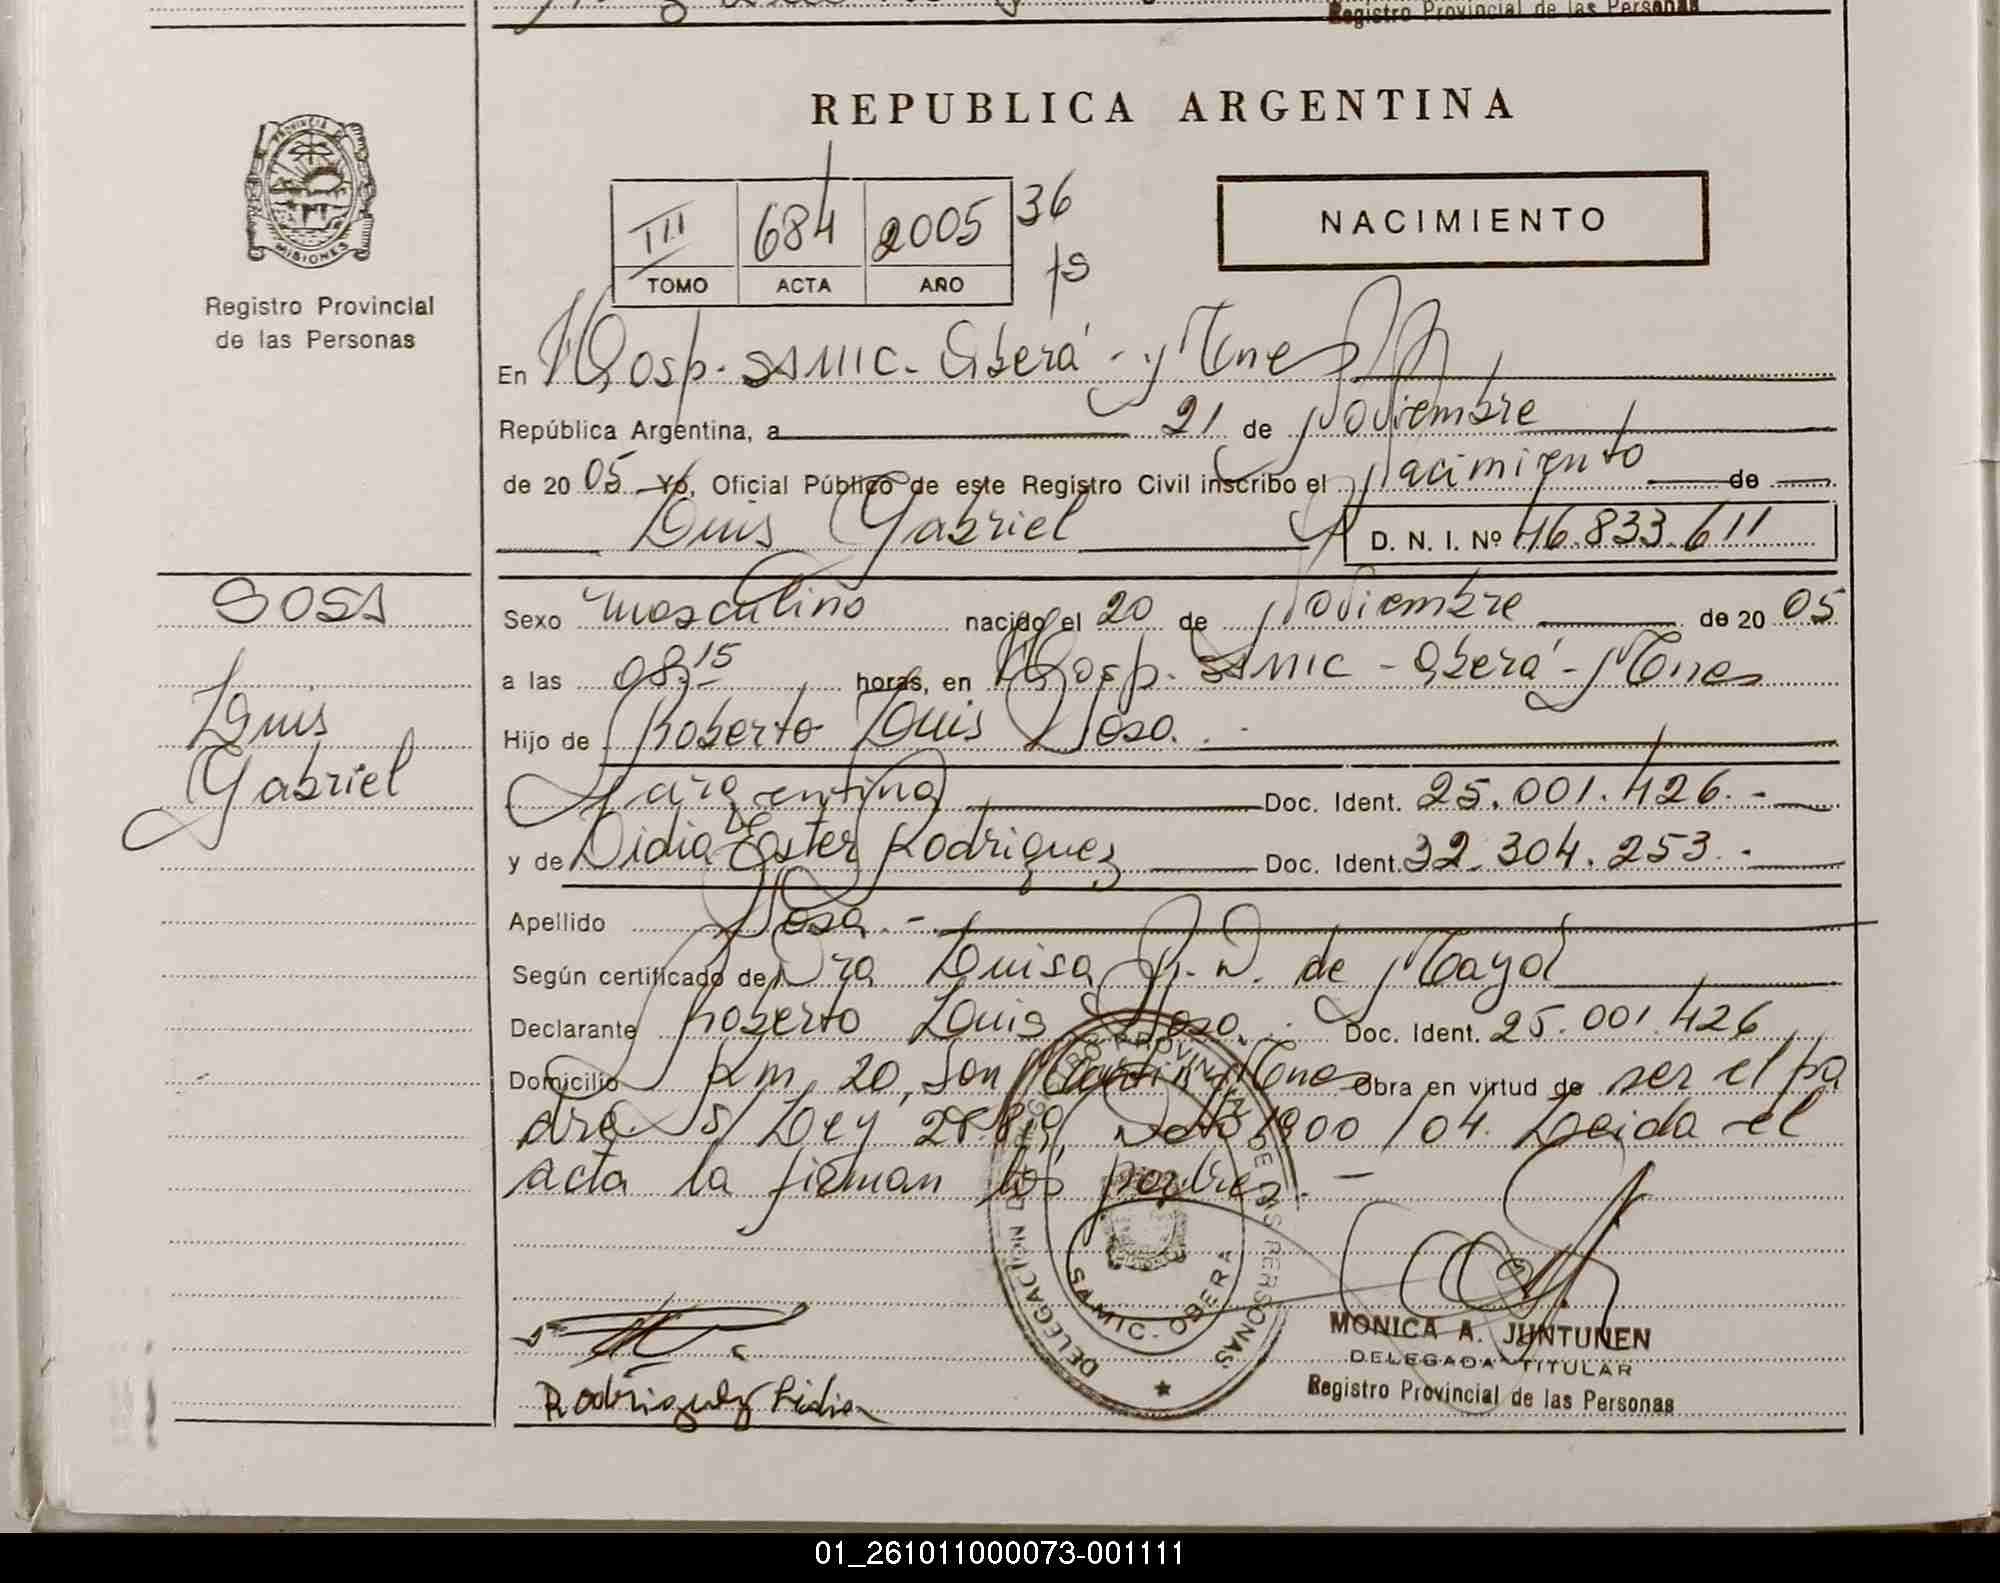 Registro Provincial de las Personas
REPUBLICA ARGENTINA
PROVINCIA DE MISIONES
Registro Provincial
de las Personas
III 684 2005 36
TOMO ACTA AÑO
NACIMIENTO
En Hosp. SAMIC - Oberá - Mnes
República Argentina, a 21 de Noviembre
de 20 05 Yo, Oficial Público de este Registro Civil inscribo el Nacimiento de
Luis Gabriel D. N. I. Nº 46.833.611
SOSA
Luis
Gabriel
Sexo masculino nacido el 20 de Noviembre de 20 05
a las 08.15 horas, en Hosp. SAMIC - Oberá - Mnes
Hijo de Roberto Luis Sosa.
argentina Doc. Ident. 25.001.426.-
y de Lidia Ester Rodriguez Doc. Ident. 32.304.253.-
Apellido Sosa.-
Según certificado de Dra Luisa de Mayol
Declarante Roberto Luis Sosa. Doc. Ident. 25.001.426
Domicilio Km. 20, San Martín Mnes Obra en virtud de ser el pa
dre. S/ Ley 1900/04. Leida el
acta la firman los padres.-
DELEGACION REGISTRO PROVINCIAL DE LAS PERSONAS
SAMIC - OBERA
MONICA A. JUNTUNEN
DELEGADA TITULAR
Registro Provincial de las Personas
Rodriguez Lidia
01_261011000073-001111